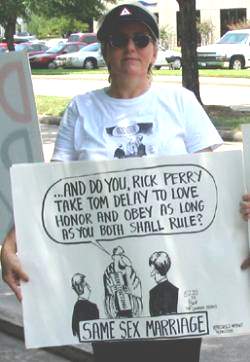 ...AND DO YOU, RICK PERRY
TAKE TOM DELAY TO LOVE
HONOR AND OBEY AS LONG
AS YOU BOTH SHALL RULE?
SAME SEX MARRIAGE